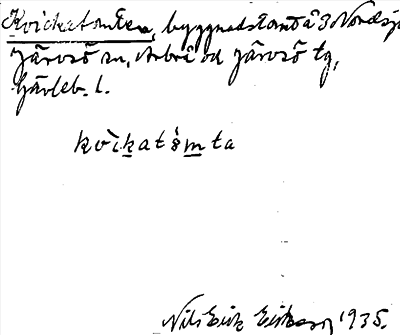 byggnadstomt å 3 Nordsjö
Järvsö sn, Arbrå od Järvsö tg,
Gävleb. l.
kvìkatòmta
Nils Erik Eriksson 1935.